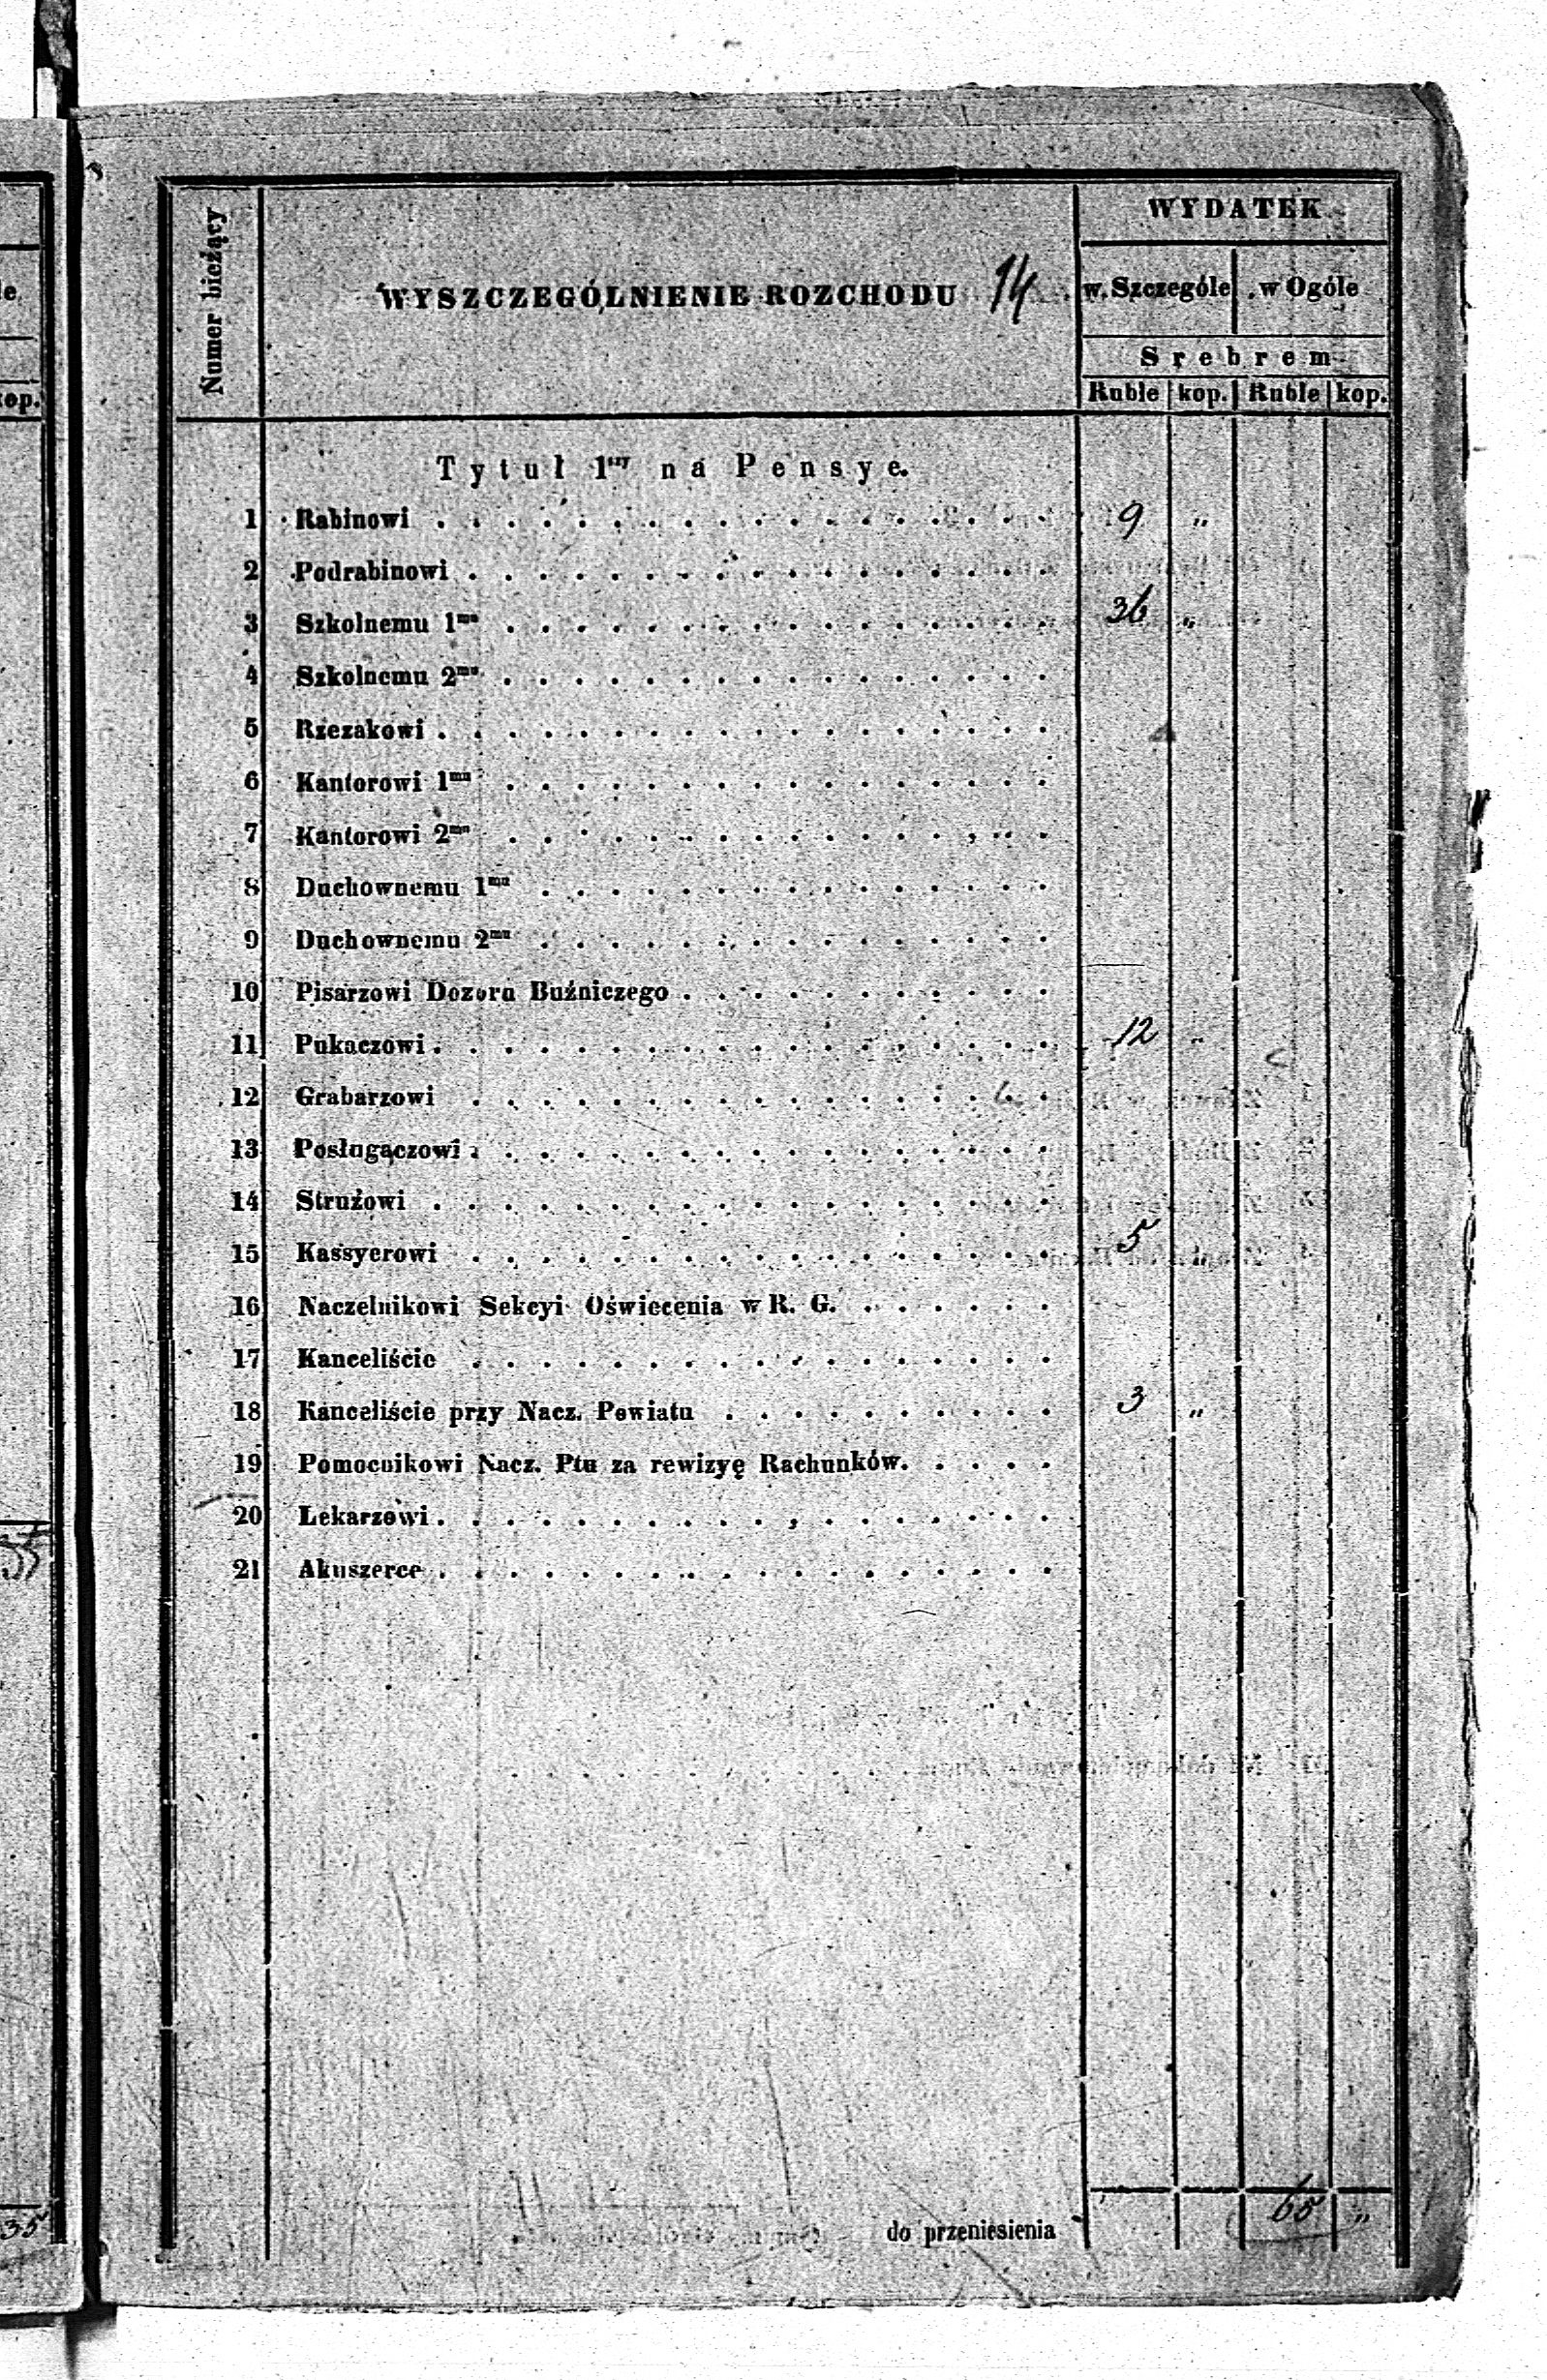 Numer bieżący
WYSZCZEGÓLNIENIE ROZCHODU 14
WYDATEK
w Szczególe w Ogóle
Srebrem
Ruble kop. Ruble kop.
Tytuł 1ny na Pensye.
1 Rabinowi . . . . . . . . . . 9 "
2 Podrabinowi . . . . . . . . . .
3 Szkolnemu 1mu . . . . . . . . . . 36 "
4 Szkolnemu 2mu . . . . . . . . . .
5 Rzezakowi . . . . . . . . . .
6 Kantorowi 1mu . . . . . . . . . .
7 Kantorowi 2mu . . . . . . . . . .
8 Duchownemu 1mu . . . . . . . . . .
9 Duchownemu 2mu . . . . . . . . . .
10 Pisarzowi Dozoru Buźniczego . . . . . . . . . .
11 Pukaczowi . . . . . . . . . . 12 "
12 Grabarzowi . . . . . . . . . .
13 Posługaczowi . . . . . . . . . .
14 Strużowi . . . . . . . . . .
15 Kassyerowi . . . . . . . . . . 5
16 Naczelnikowi Sekcyi Oświecenia w R. G. . . . . . .
17 Kanceliście . . . . . . . . . .
18 Kanceliście przy Nacz. Powiatu . . . . . . . . . . 3 "
19 Pomocnikowi Nacz. Ptu za rewizyę Rachunków. . . . .
20 Lekarzowi . . . . . . . . . .
21 Akuszerce . . . . . . . . . .
do przeniesienia 65 "
le
kop.
35